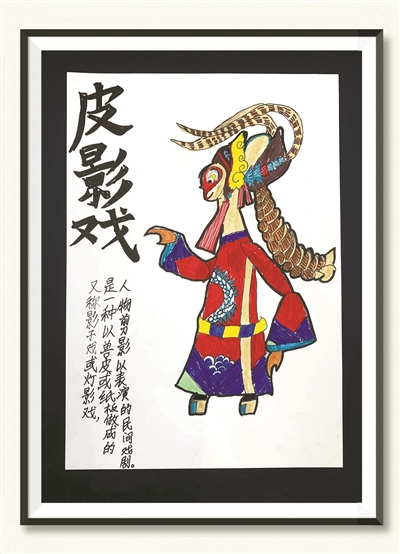 皮影戏
又称影子戏或灯影戏，
是一种以兽皮或纸板做成的
人物剪影以表演的民间戏剧。